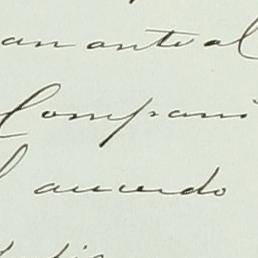 an ante al
Compani
acuerdo